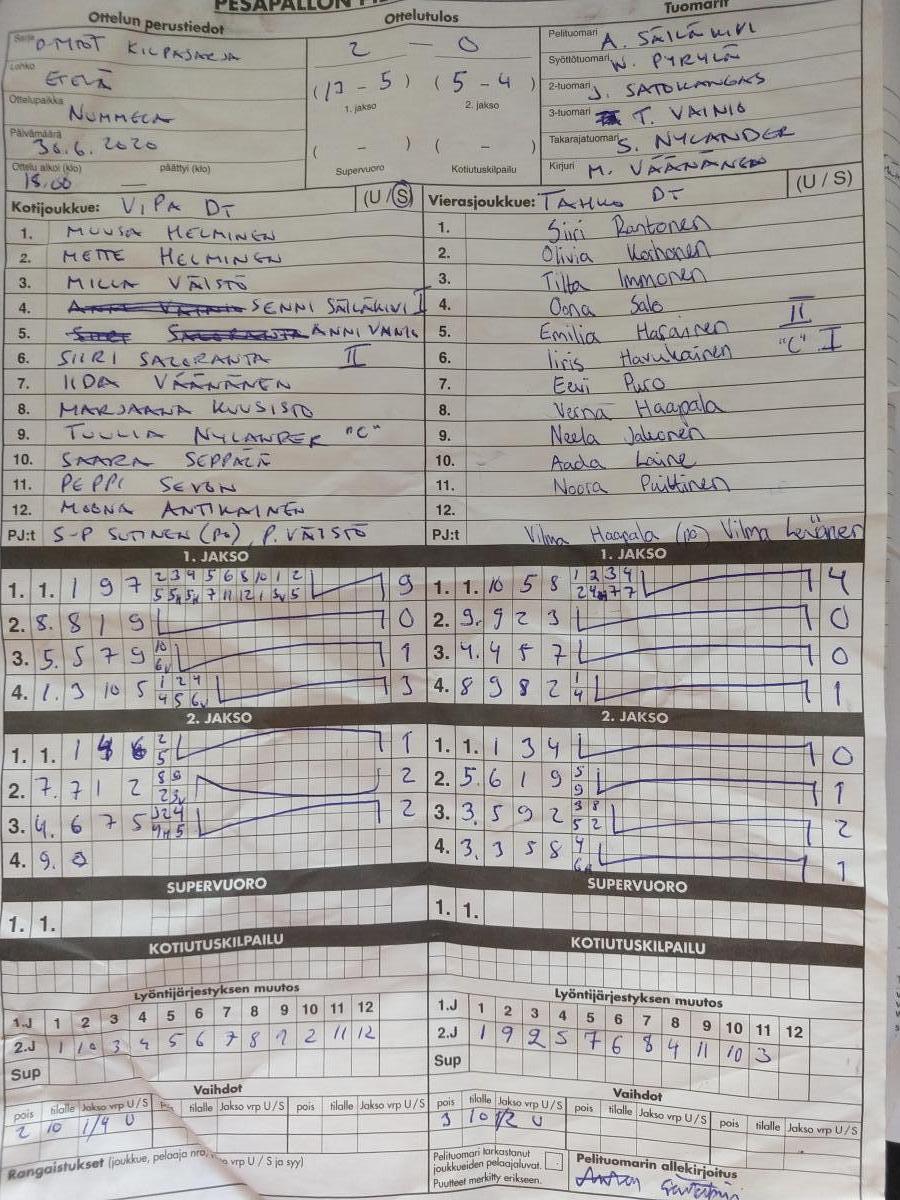 Ottelun perustiedot
Sarja D-TYTÖT KILPASARJA
Lohko ETELÄ
Ottelupaikka NUMMELA
Päivämäärä 30.6.2020
Ottelu alkoi (klo) päättyi (klo)
18.00 —
Ottelutulos
2 — 0
(13 - 5) (5 - 4)
1. jakso 2. jakso
( - ) ( - )
Supervuoro Kotiutuskilpailu
Tuomarit
Pelituomari A. SÄILÄKIVI
Syöttötuomari W. PYRYLÄ
2-tuomari J. SATOKANGAS
3-tuomari T. VAINIO
Takarajatuomari S. NYLANDER
Kirjuri M. VÄÄNÄNEN
Kotijoukkue: ViPa DT (U / S)
1. MUUSA HELMINEN
2. METTE HELMINEN
3. MILLA VÄISTÖ
4. SENNI SÄILÄKIVI I
5. ANNI VAINIO
6. SIIRI SALORANTA II
7. IIDA VÄÄNÄNEN
8. MARJAANA KUUSISTO
9. TUULIA NYLANDER "C"
10. SAARA SEPPÄLÄ
11. PEPPI SEVON
12. MOONA ANTIKAINEN
PJ:t S-P SUTINEN (PO), P. VÄISTÖ
Vierasjoukkue: TAHKO DT (U / S)
1. Siiri Rantonen
2. Olivia Korhonen
3. Tilta Immonen
4. Oona Salo
5. Emilia II
6. Iiris Havukainen "C" I
7. Eevi Puro
8. Verna Haapala
9. Neela Jalkonen
10. Aada Laine
11. Noora Puittinen
12.
PJ:t Vilma Haapala (po) Vilma
1. JAKSO
1. 1. 1 9 7 2 3 4 5 6 8 10 1 2 9
2. 8. 8 1 9 0
3. 5. 5 7 9 10 1
6v
4. 1. 3 10 5 1 2 4 3
4 5 6v
2. JAKSO
1. 1. 1 2 1
5
2. 7. 7 1 2 8 9 2
2 3v
3. 4. 6 7 5 3 2 4 2
4. 9.
SUPERVUORO
1. 1.
KOTIUTUSKILPAILU
1. JAKSO
1. 1. 10 5 8 1 2 3 4 4
2. 9. 9 2 3 0
3. 4. 4 5 7 0
4. 8 9 8 2 1 1
4
2. JAKSO
1. 1. 1 3 4 0
2. 5. 6 1 9 5 1
9
3. 3. 5 9 2 3 8 2
5 2
4. 3. 3 5 8 4 1
SUPERVUORO
1. 1.
KOTIUTUSKILPAILU
Lyöntijärjestyksen muutos
1.J 1 2 3 4 5 6 7 8 9 10 11 12
2.J 1 10 3 4 5 6 7 8 9 2 11 12
Sup
Vaihdot
pois tilalle Jakso vrp U / S tilalle Jakso vrp U / S pois tilalle Jakso vrp U / S
2 10 1/4 U
Rangaistukset (joukkue, pelaaja nro, vrp U / S ja syy)
Lyöntijärjestyksen muutos
1.J 1 2 3 4 5 6 7 8 9 10 11 12
2.J 1 9 2 5 7 6 8 4 11 10 3
Sup
Vaihdot
pois tilalle Jakso vrp U / S pois tilalle Jakso vrp U / S pois tilalle Jakso vrp U / S
3 10 1/2 U
Pelituomari tarkastanut
joukkueiden pelaajaluvat.
Puutteet merkitty erikseen.
Pelituomarin allekirjoitus